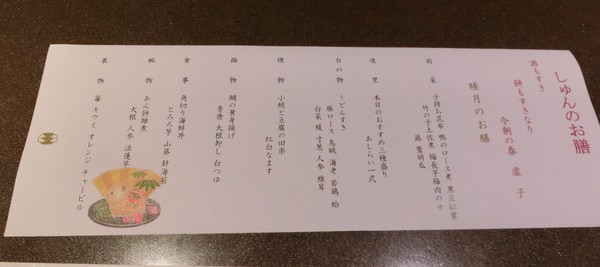 しゅんのお膳
酒もすき
餅もすきなり
今朝の春 虚子
睦月のお膳
前菜 子持ち昆布 鴨のロース煮 黒豆松葉
竹の子土佐煮 梅長芋梅肉のせ
蕗
造里 本日のおすすめ三種盛り
あしらい一式
台の物 うどんすき
豚ロース 鳥賊 海老 若鶏 蛤
白菜 椎 寸葱 人参 椎茸
焼物 小蛸と豆腐の田楽
紅白なます
揚物 鯛の黄身揚げ
青唐 大根卸し 白つゆ
食事 角切り海鮮丼
とろろ芋 山葵 針海苔
椀物 あん餅雑煮
大根 人参 法蓮草
果物 苺 キウイ オレンジ チャービル